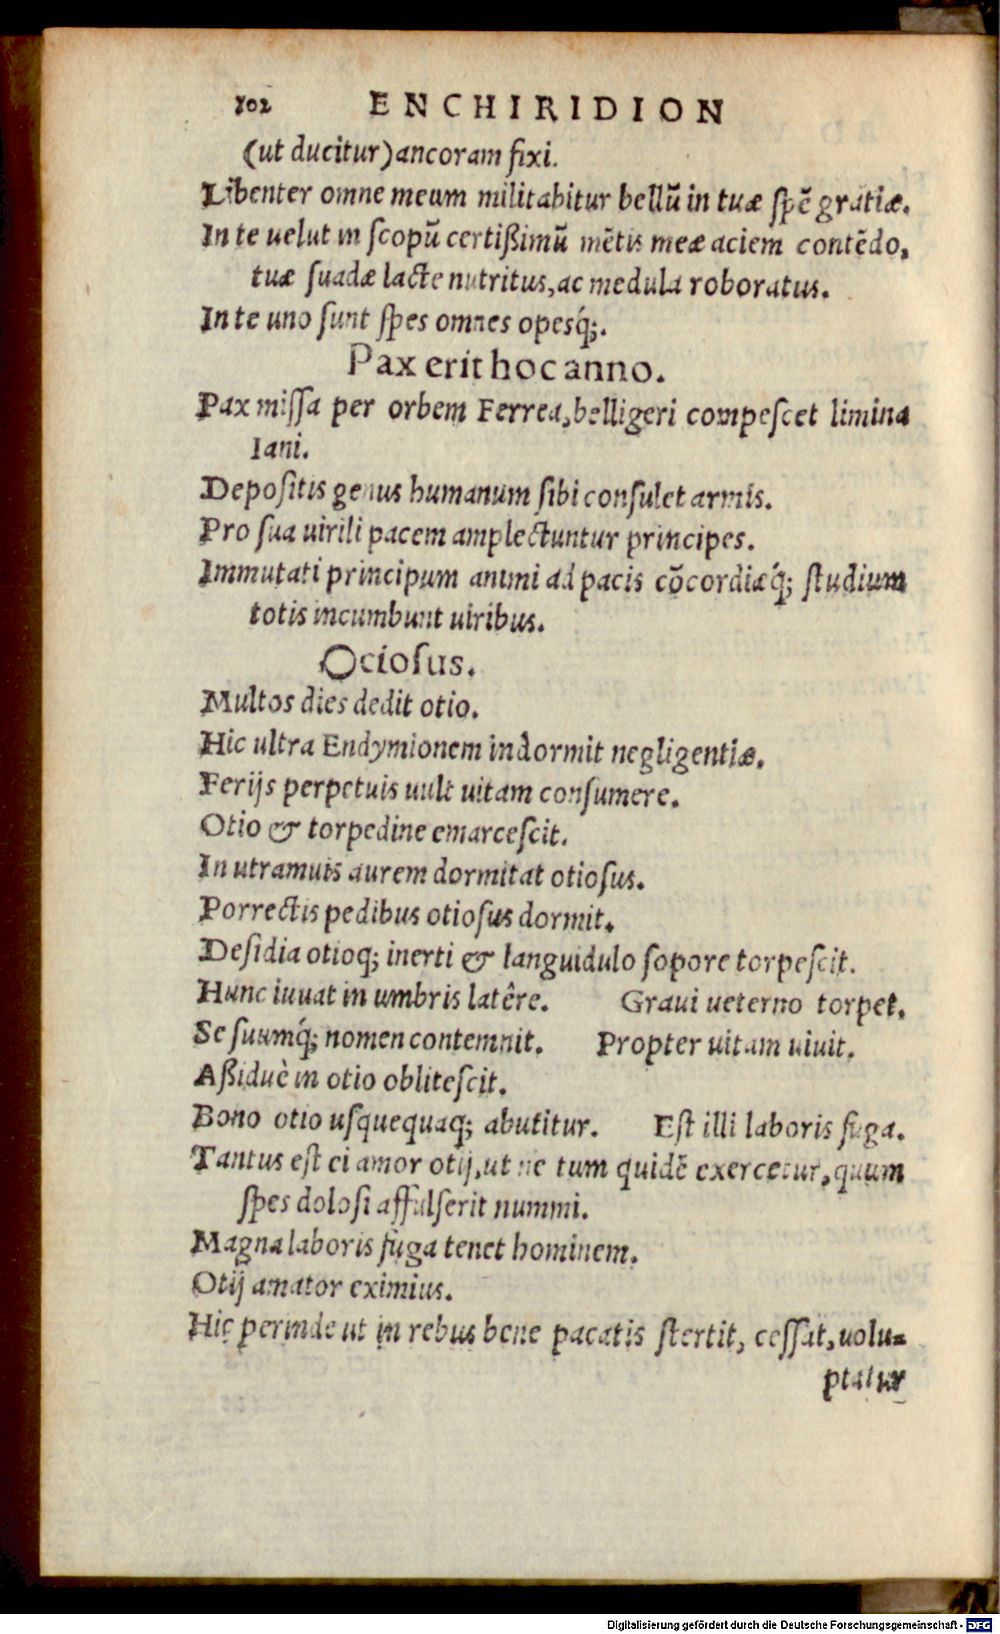 102 ENCHIRIDION
(ut ducitur) ancoram fixi.
Libenter omne meum militabitur bellũ in tuæ ſpẽ gratiæ.
In te uelut in ſcopũ certißimũ mẽtis meæ aciem contẽdo,
tuæ ſuadæ lacte nutritus, ac medula roboratus.
In te uno ſunt ſpes omnes opesq́;.
Pax erit hoc anno.
Pax miſſa per orbem Ferrea, belligeri compeſcet limina
Iani.
Depoſitis genus humanum ſibi conſulet armis.
Pro ſua uirili pacem amplectuntur principes.
Immutati principum animi ad pacis cõcordiæq́; ſtudium
totis incumbunt uiribus.
Ocioſus.
Multos dies dedit otio.
Hic ultra Endymionem indormit negligentiæ.
Ferijs perpetuis uult uitam conſumere.
Otio & torpedine emarceſcit.
In utramuis aurem dormitat otioſus.
Porrectis pedibus otioſus dormit.
Deſidia otioq; inerti & languidulo ſopore torpeſcit.
Hunc iuuat in umbris latêre. Graui ueterno torpet.
Se ſuumq́; nomen contemnit. Propter uitam uiuit.
Aßiduè in otio obliteſcit.
Bono otio uſquequaq; abutitur. Eſt illi laboris fuga.
Tantus eſt ei amor otij, ut ne tum quidẽ exercetur, quum
ſpes doloſi affulſerit nummi.
Magna laboris fuga tenet hominem.
Otij amator eximius.
Hic perinde ut in rebus bene pacatis ſtertit, ceſſat, uolu-
ptatur
Digitalisierung gefördert durch die Deutsche Forschungsgemeinschaft - DFG